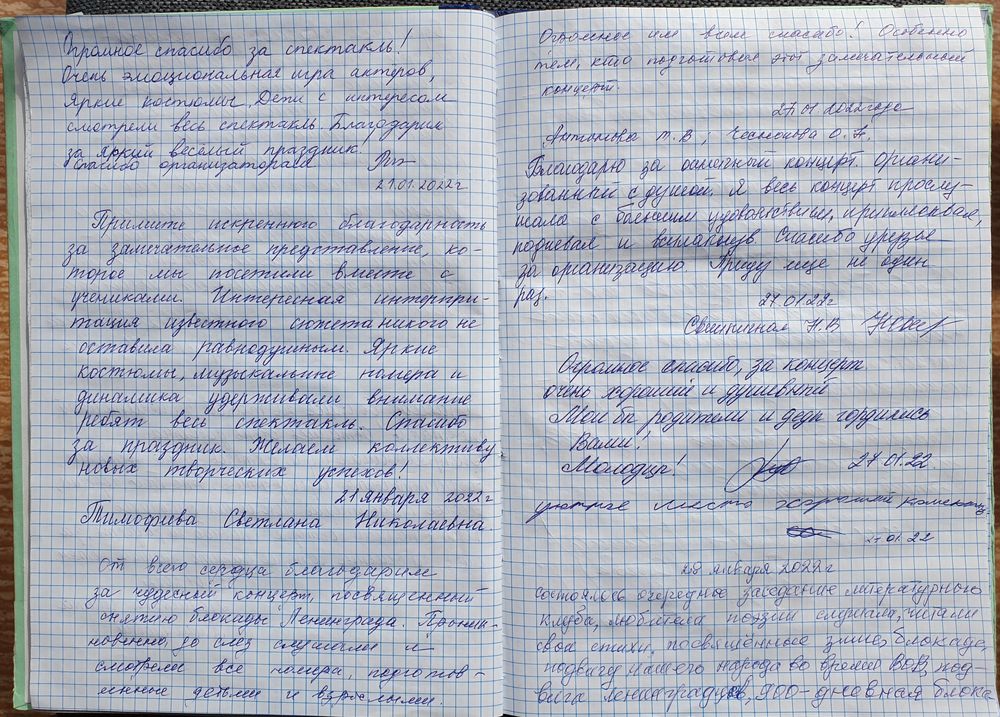 Огромное спасибо за спектакль!
Очень эмоциональная игра актеров,
яркие костюмы. Дети с интересом
смотрели весь спектакль. Благодарим
за яркий веселый праздник.
Спасибо организаторам
21.01.2022г
Примите искреннюю благодарность
за замечательное представление, ко-
торое мы посетили вместе с
учениками. Интересная интерпри-
тация известного сюжета никого не
оставила равнодушным. Яркие
костюмы, музыкальные номера и
динамика удерживали внимание
ребят весь спектакль. Спасибо
за праздник. Желаем коллективу
новых творческих успехов!
21 января 2022г
Тимофеева Светлана Николаевна.
От всего сердца благодарим
за чудесный концерт, посвященный
снятию блокады Ленинграда. Проник-
новенно, до слез слушали и
смотрели все номера, подготов-
ленные детьми и взрослыми.
Огромное им всем спасибо! Особенно
тем, кто подготовил этот замечательный
концерт.
27.01 2022года
Антонова Т. В ; Чеснокова О. А.
Благодарю за отличный концерт. Органи-
зованный с душой. Я весь концерт прослу-
шала с большим удовольствием,
подпевая и Спасибо
за организацию. Приду еще не один
раз.
27.01 22г
Н. В
Огромное спасибо, за концерт
очень хороший и душевный
Мои бы родители и деды гордились
Вами!
Молодцы!
27 01.22
уютное место хороший
27 01. 22
28 января 2022г
состоялось очередное заседание литературного
клуба, любители поэзии слушали, читали
свои стихи, посвящённые зиме, блокаде,
подвигу нашего народа во время ВОВ, под-
вига ленинградцев, 900-дневная блока